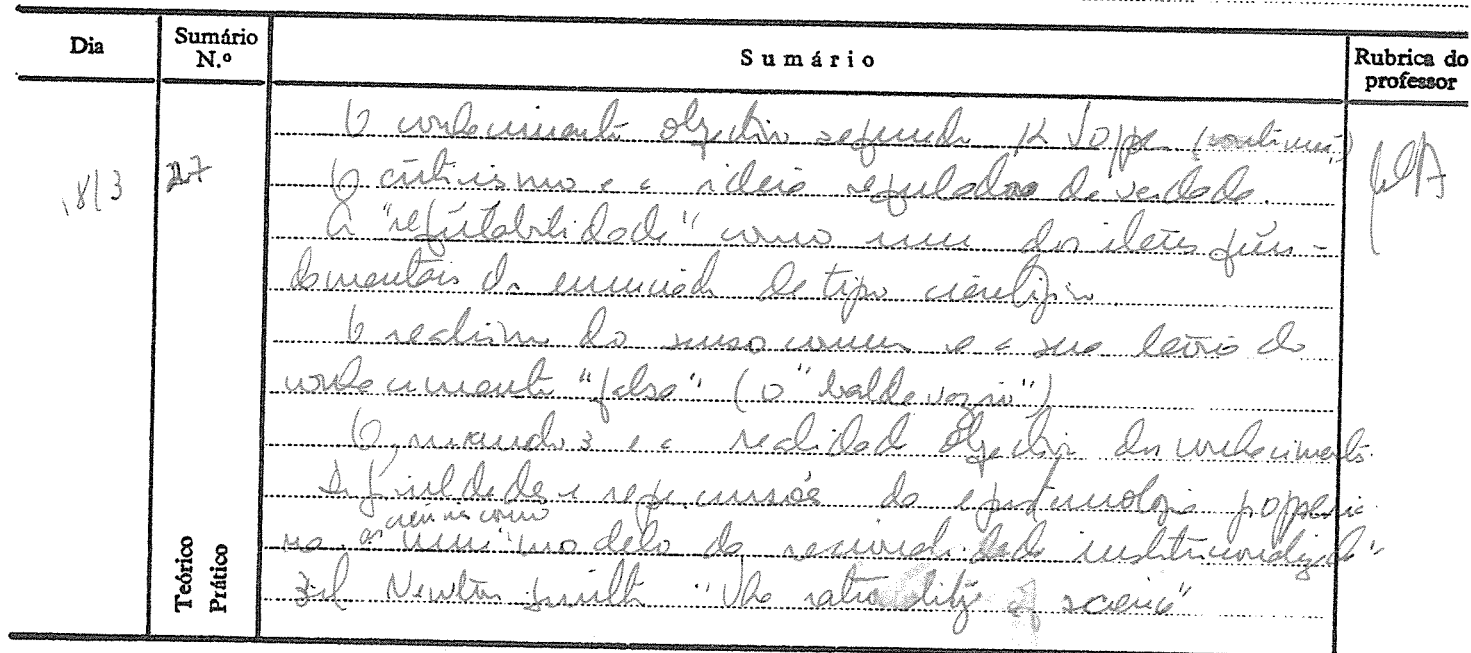 Dia Sumário N.º Sumário Rubrica do professor
O conhecimento objectivo segundo K Popper (continuação)
18/3 27 O criticismo e a ideia reguladora de verdade.
A "refutabilidade" como um dos ideais fun-
damentais do enunciado de tipo científico.
O realismo do senso comum e a sua teoria do
conhecimento "falsa" (o "balde vazio")
O mundo 3 e a realidade objectiva do conhecimento
Dificuldades e repercussões da epistemologia popperia-
na. as ciências como um "modelo da racionalidade institucionalizada"
Newton Smith "The rationality of science"
Teórico
Prático